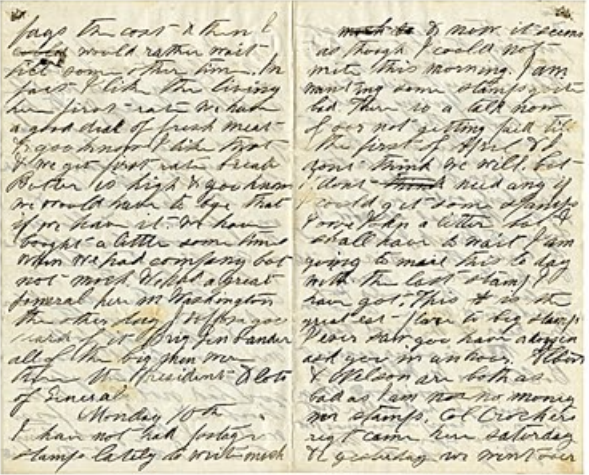 pays the cost & then I
would rather wait
till some other time. In
fact I like the living
here first-rate We have
a good deal of fresh meat
& you know I like that
& we get first rate bread
Butter is high & you know
we would have to buy that
if we have it. We have
bought a little some times
when we had company but
not much We had a great
funeral here in Washington
the other day I suppose you
read of it Brig Gen Lander
all of the big men were
there the President & lots
of General
Monday 10th
I have not had postage
stamps lately to write much
& now it seems
as though I could not
write this morning. I am
wanting some stamps
bad There is a talk now
of our not getting paid till
the first of April & I
dont think we will. but
I dont need any if
I could get some stamps
I owe a letter but I
shall have to wait I am
going to mail this to day
with the last stamp I
have got. This is the
greatest place to beg stamps
I ever saw you have a dozen
ask you in an hour.
& Wilson are both as
bad as I am no money
nor stamps. Col Crockers
regt came here saturday
& yesterday we went over